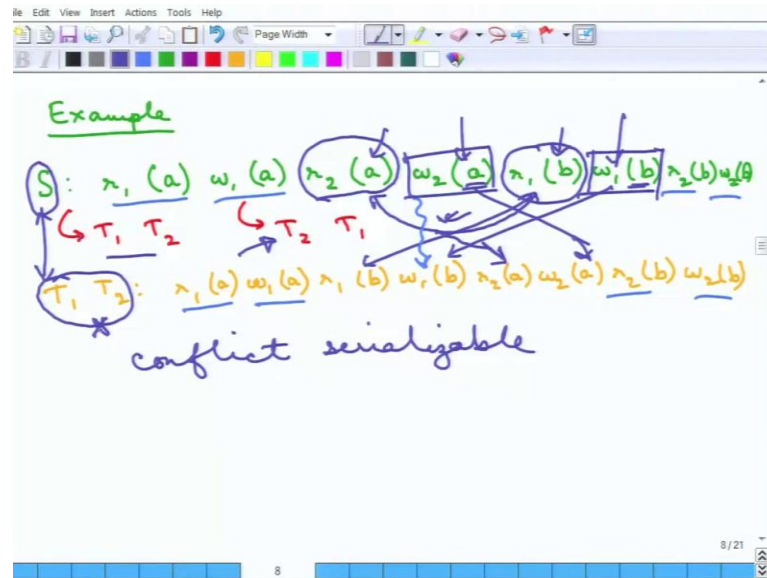 ile Edit View Insert Actions Tools Help
Page Width
Example
S: r₁(a) w₁(a) r₂(a) w₂(a) r₁(b) w₁(b) r₂(b) w₂(b)
T₁ T₂ T₂ T₁
T₁ T₂: r₁(a) w₁(a) r₁(b) w₁(b) r₂(a) w₂(a) r₂(b) w₂(b)
conflict serializable
8/21
8